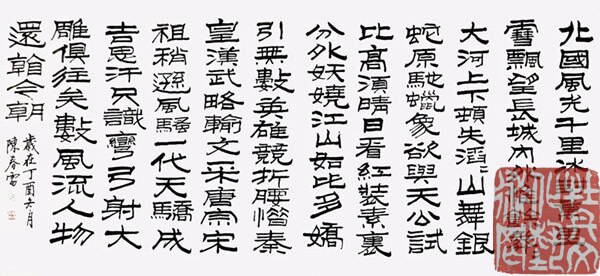 北國風光千里冰封萬里
雪飄望長城內外
大河上下頓失滔〻山舞銀
蛇原馳蠟象欲與天公試
比高須晴日看紅裝素裹
分外妖嬈江山如此多嬌
引無數英雄競折腰惜秦
皇漢武略輸文采唐宗宋
祖稍遜風騷一代天驕成
吉思汗只識彎弓射大
雕俱往矣數風流人物
還看今朝
歲在丁酉六月
陳春